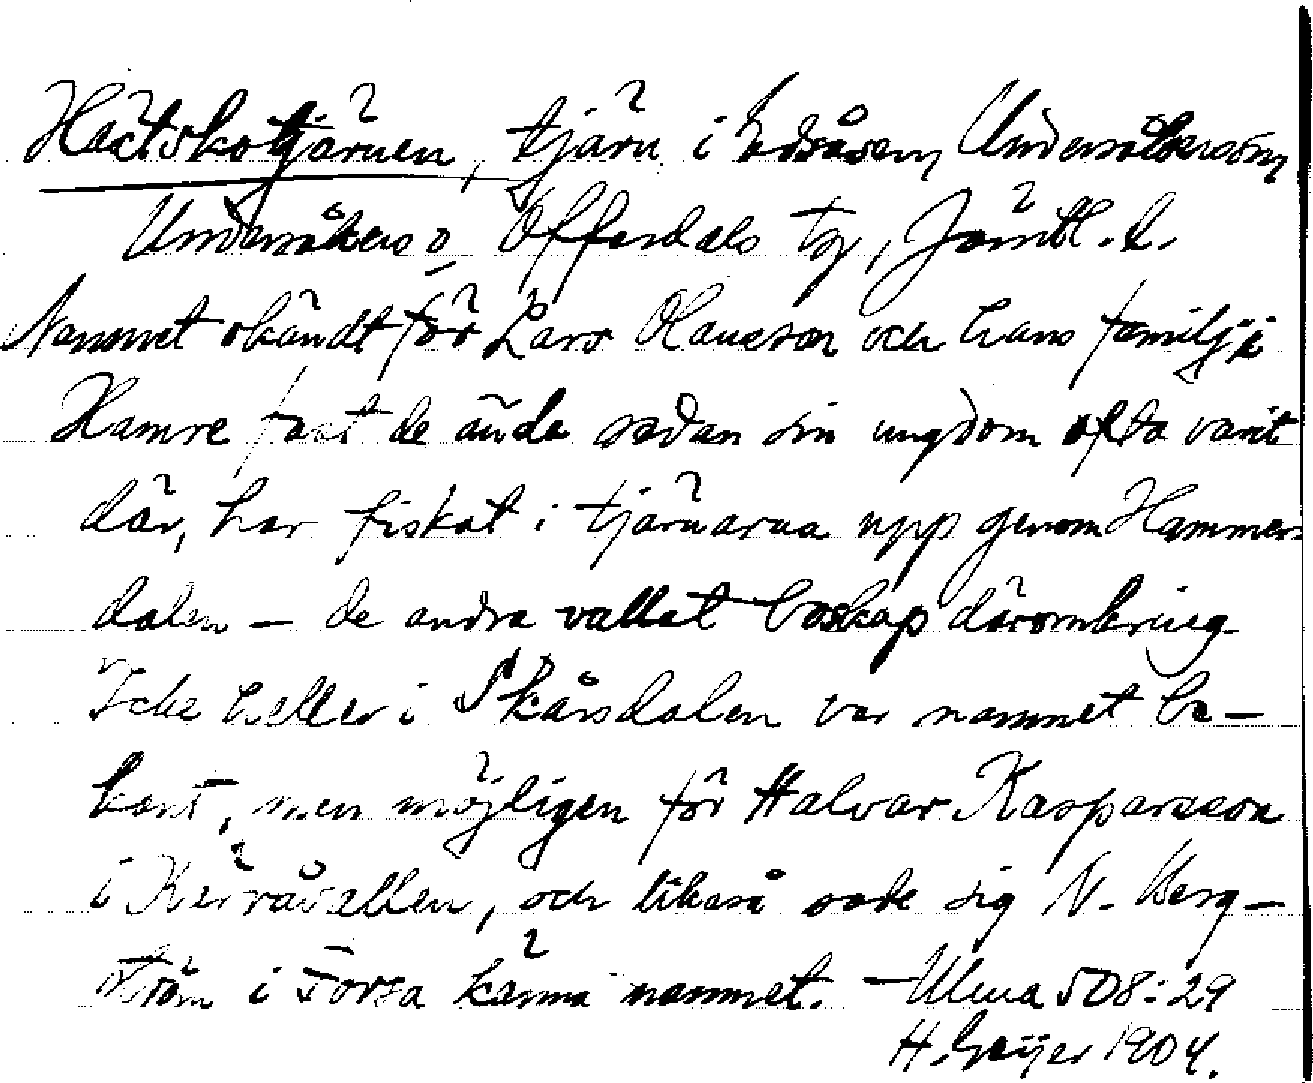 Hästskotjärnen, tjärn i Edsåsen, Undersåkers sn
Undersåkers o. Offerdals tg, Jämtl. l.
Namnet okändt för Lars Olausson och hans familj i
Hamre fast de ända sedan sin ungdom ofta varit
där, har fiskat i tjärnarna upp genom Hammer-
dalen – de andra vallat boskap däromkring
Icke heller i Skårsdalen var namnet be-
kant, men möjligen för Halvar Kasparsson
i och likaså sade sig N. Berg-
ström i Forsa känna namnet. – Ulma 508:29
H. Geijer 1904.